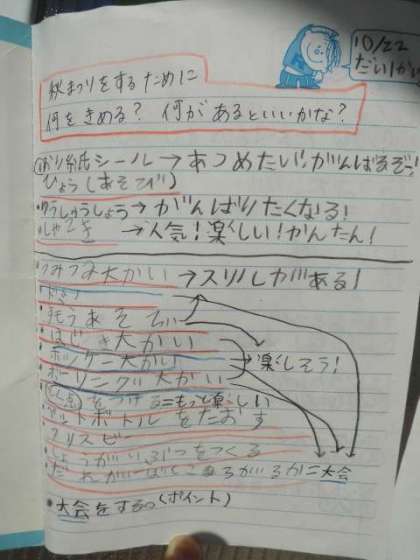 10/22
だい1かい
秋まつりをするために
何をきめる? 何があるといいかな?
おり紙シール→あつめたい!がんばるぞっ
ひょう(あそび)
・ゆうしゅうしょう→がんばりたくなる!
・しゃてき→人気!楽しい!かんたん!
つみつみ大かい→スリルがある!
あそび
はじき大かい
大かい
→楽しそう!
ボーリング大かい
をつける=もっと楽しい
ットボトルをたおす
フリスビー
しょうがいぶつをつくる
だれが一ばんころがるか=大会
・大会をする。(ポイント)